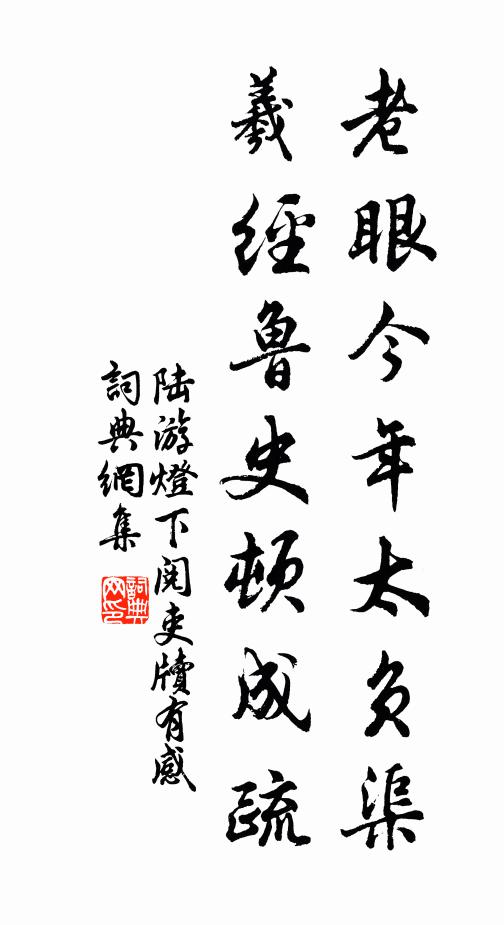 老眼今年太负渠
羲經魯史頓成疏
陆游燈下阅吏牘有感
詞典網集
詞典网印